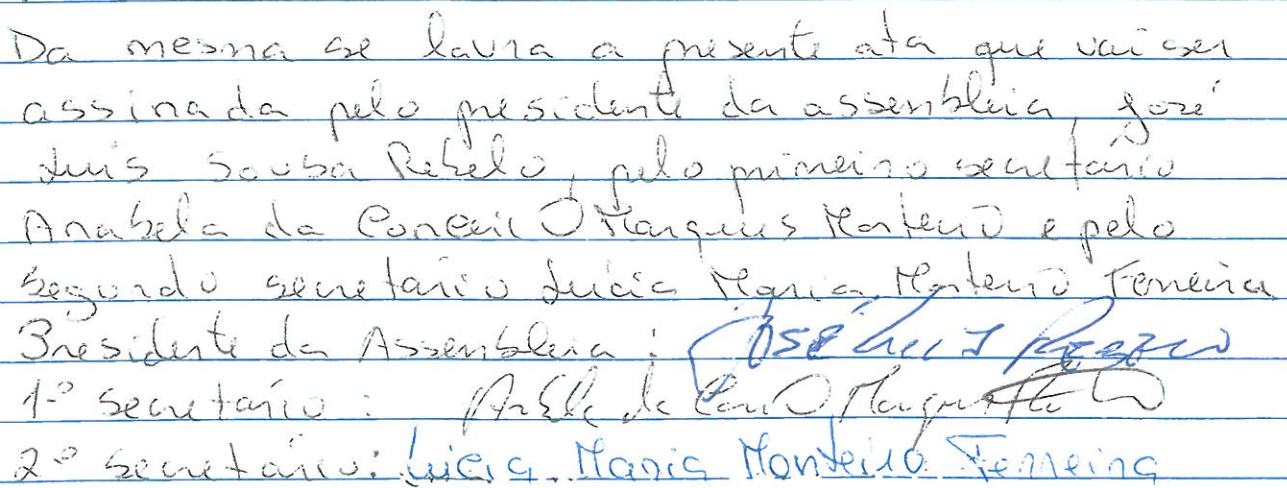 Da mesma se lavra a presente ata que vai ser
assinada pelo presidente da assembleia, José
Luis Sousa Rebelo, pelo primeiro secretário
Anabela da Conceição Marques Monteiro e pelo
segundo secretario Lúcia Maria Monteiro Ferreira
Presidente da Assembleia: José Luis S Rebelo
1º secretário: da Marques
2º secretário: Lúcia Maria Monteiro Ferreira